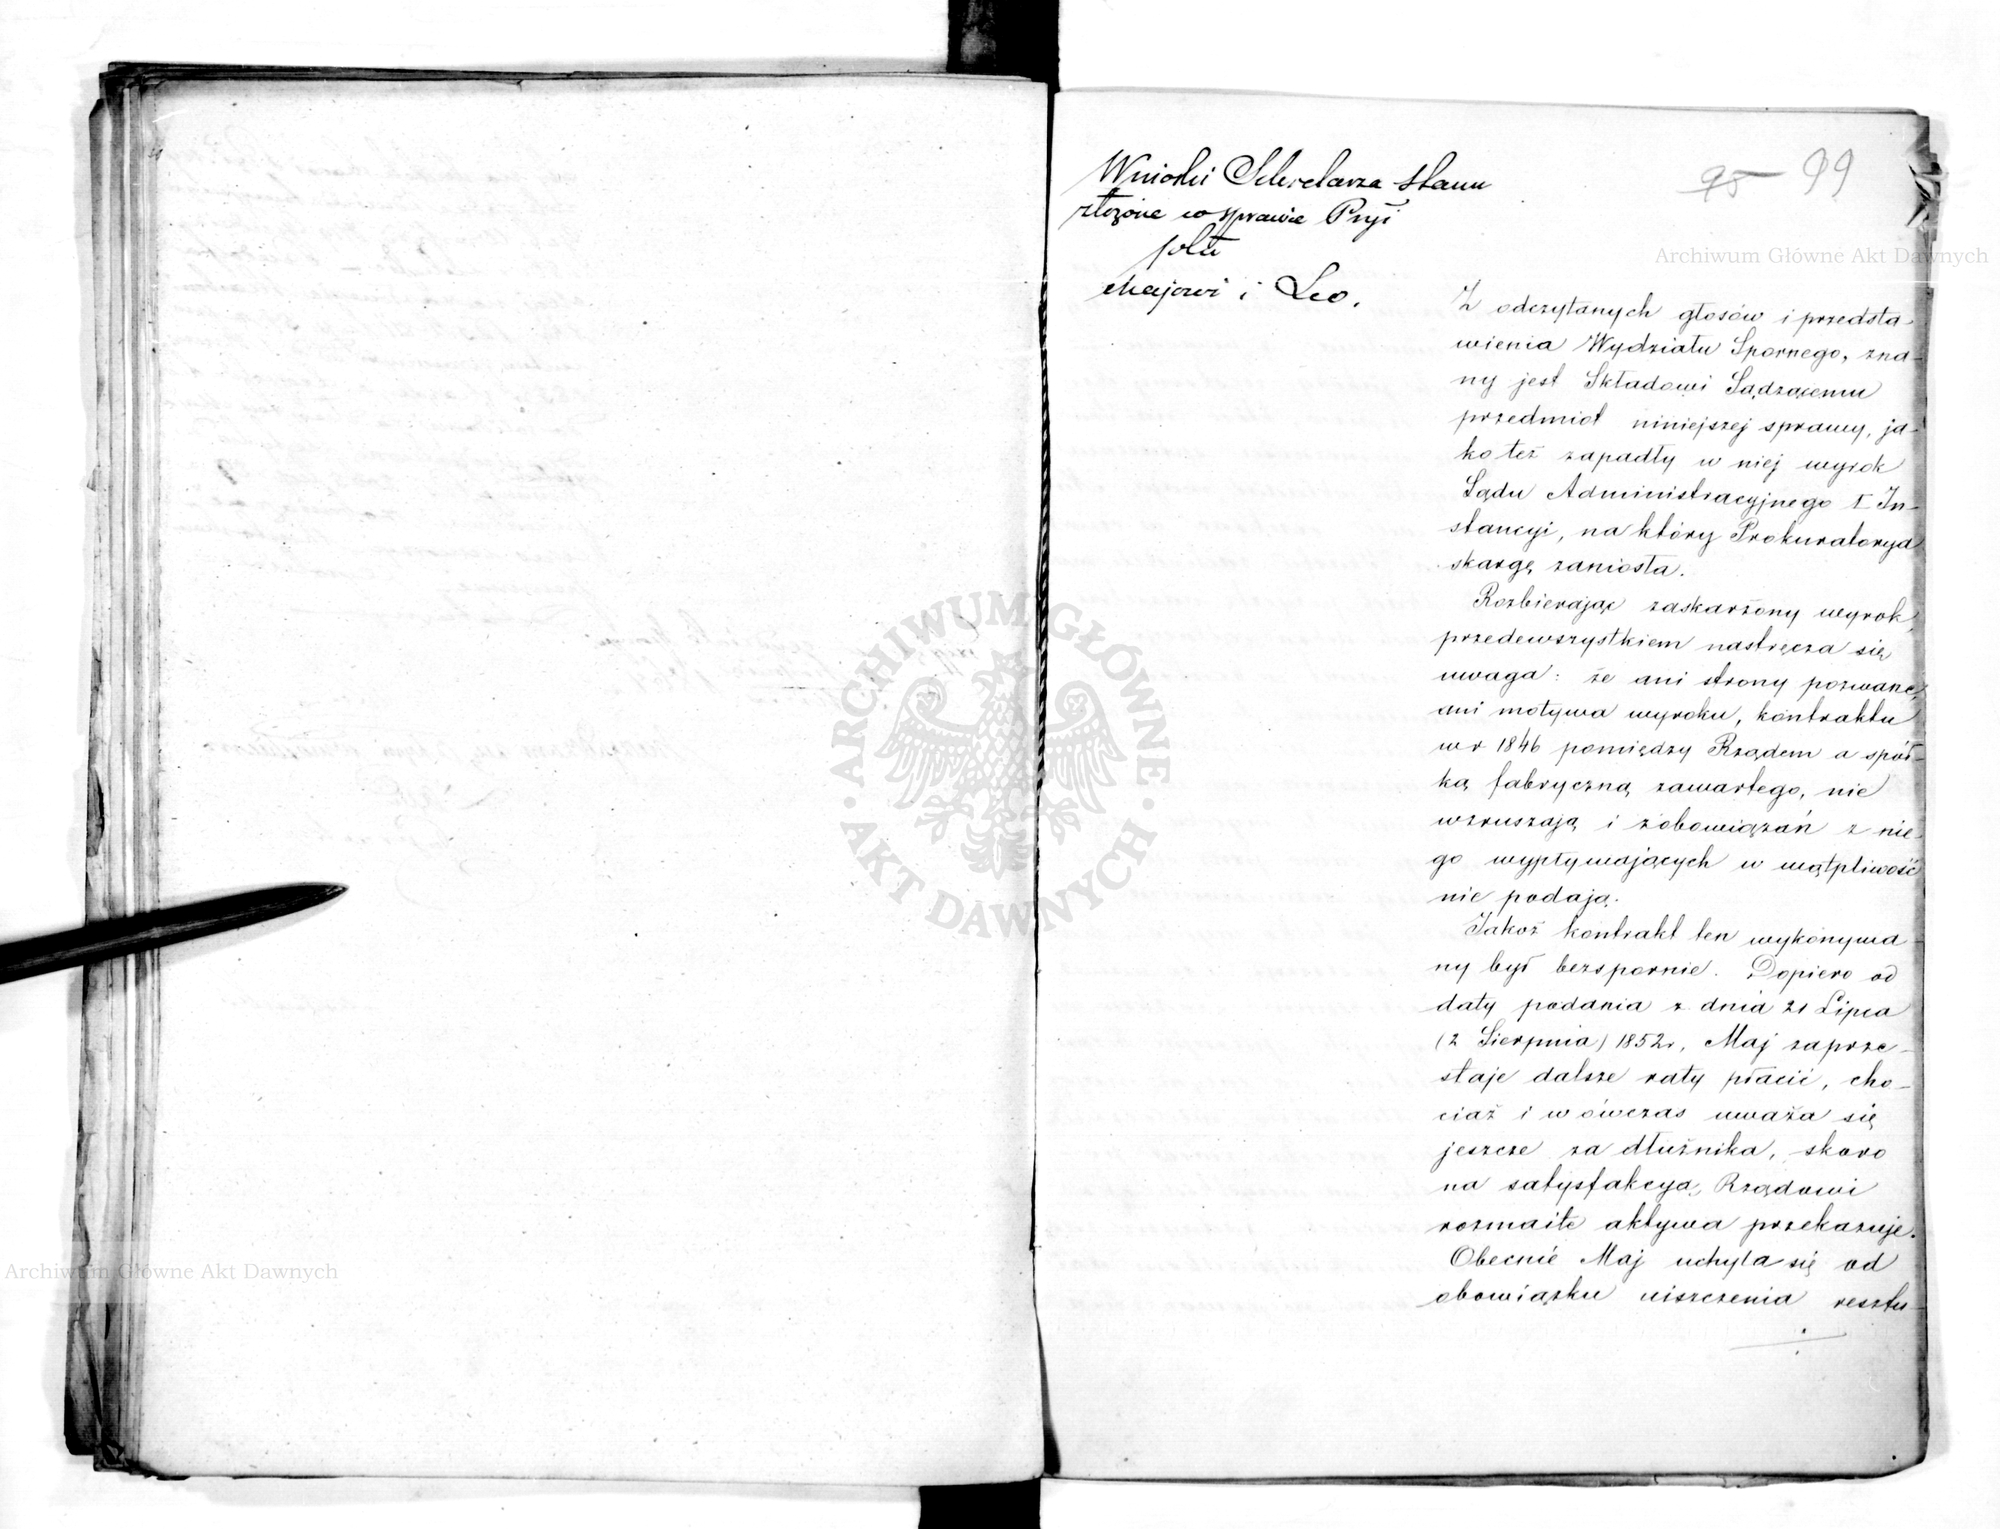 Wnioski Sekretarza Stanu
złożone w sprawie Pryi
plu
Majowi i Leo.
95 99
Archiwum Główne Akt Dawnych
Z odczytanych głosów i przedsta-
wienia Wydziału Spornego, zna-
ny jest Składowi Sądzącemu
przedmiot niniejszej sprawy, ja-
ko też zapadły w niej wyrok
Sądu Administracyjnego I In-
stancyi, na który Prokuratorya
skargę zaniosła.
Rozbierając zaskarżony wyrok,
przedewszystkiem nastręcza się
uwaga: że ani strony pozwane,
ani motywa wyroku, kontraktu
w r 1846 pomiędzy Rządem a spół-
ką fabryczną zawartego, nie
wzruszają i zobowiązań z nie-
go wypływających w wątpliwość
nie podają.
Jakoż kontrakt ten wykonywa-
ny był bezspornie. Dopiero od
daty podania z dnia 21 Lipca
(2 Sierpnia) 1852r, Maj zaprze-
staje dalsze raty płacić, cho-
ciaż i wówczas uważa się
jeszcze za dłużnika, skoro
na satysfakcyą, Rządowi
rozmaite aktywa przekazuje.
Obecnie Maj uchyla się od
obowiązku uiszczenia resztu-
ARCHIWUM GŁÓWNE
AKT DAWNYCH
Archiwum Główne Akt Dawnych